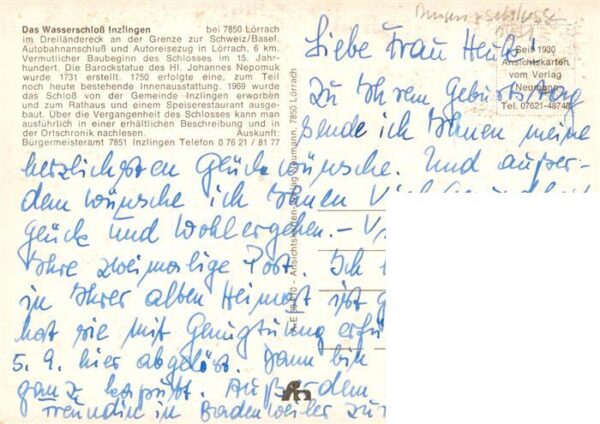 Das Wasserschloß Inzlingen bei 7850 Lörrach
im Dreiländereck an der Grenze zur Schweiz/Basel.
Autobahnanschluß und Autoreisezug in Lörrach, 6 km.
Vermutlicher Baubeginn des Schlosses im 15. Jahr-
hundert. Die Barockstatue des Hl. Johannes Nepomuk
wurde 1731 erstellt. 1750 erfolgte eine, zum Teil
noch heute bestehende Innenausstattung. 1969 wurde
das Schloß von der Gemeinde Inzlingen erworben
und zum Rathaus und einem Speiserestaurant ausge-
baut. Über die Vergangenheit des Schlosses kann man
ausführlich in einer erhältlichen Beschreibung und in
der Ortschronik nachlesen. Auskunft:
Bürgermeisteramt 7851 Inzlingen Telefon 0 76 21 / 81 77
Seit 1930
Ansichtskarten
vom Verlag
Neumann
Tel. 07621-46748
Ansichtskarten-Verlag Neumann, 7850 Lörrach
Liebe Frau
Zu Ihrem Geburtstag
sende ich Ihnen meine
herzlichsten Glückwünsche. Und außer-
dem wünsche ich Ihnen
Glück und Wohlergehen. –
Ihre zweimalige Post. Ich
in Ihrer alten Heimat ist
hat sie mit Genugtuung
5. 9. hier abgelöst. Dann bin
ganz kaputt. Außerdem
Freundin in Badenweiler zur